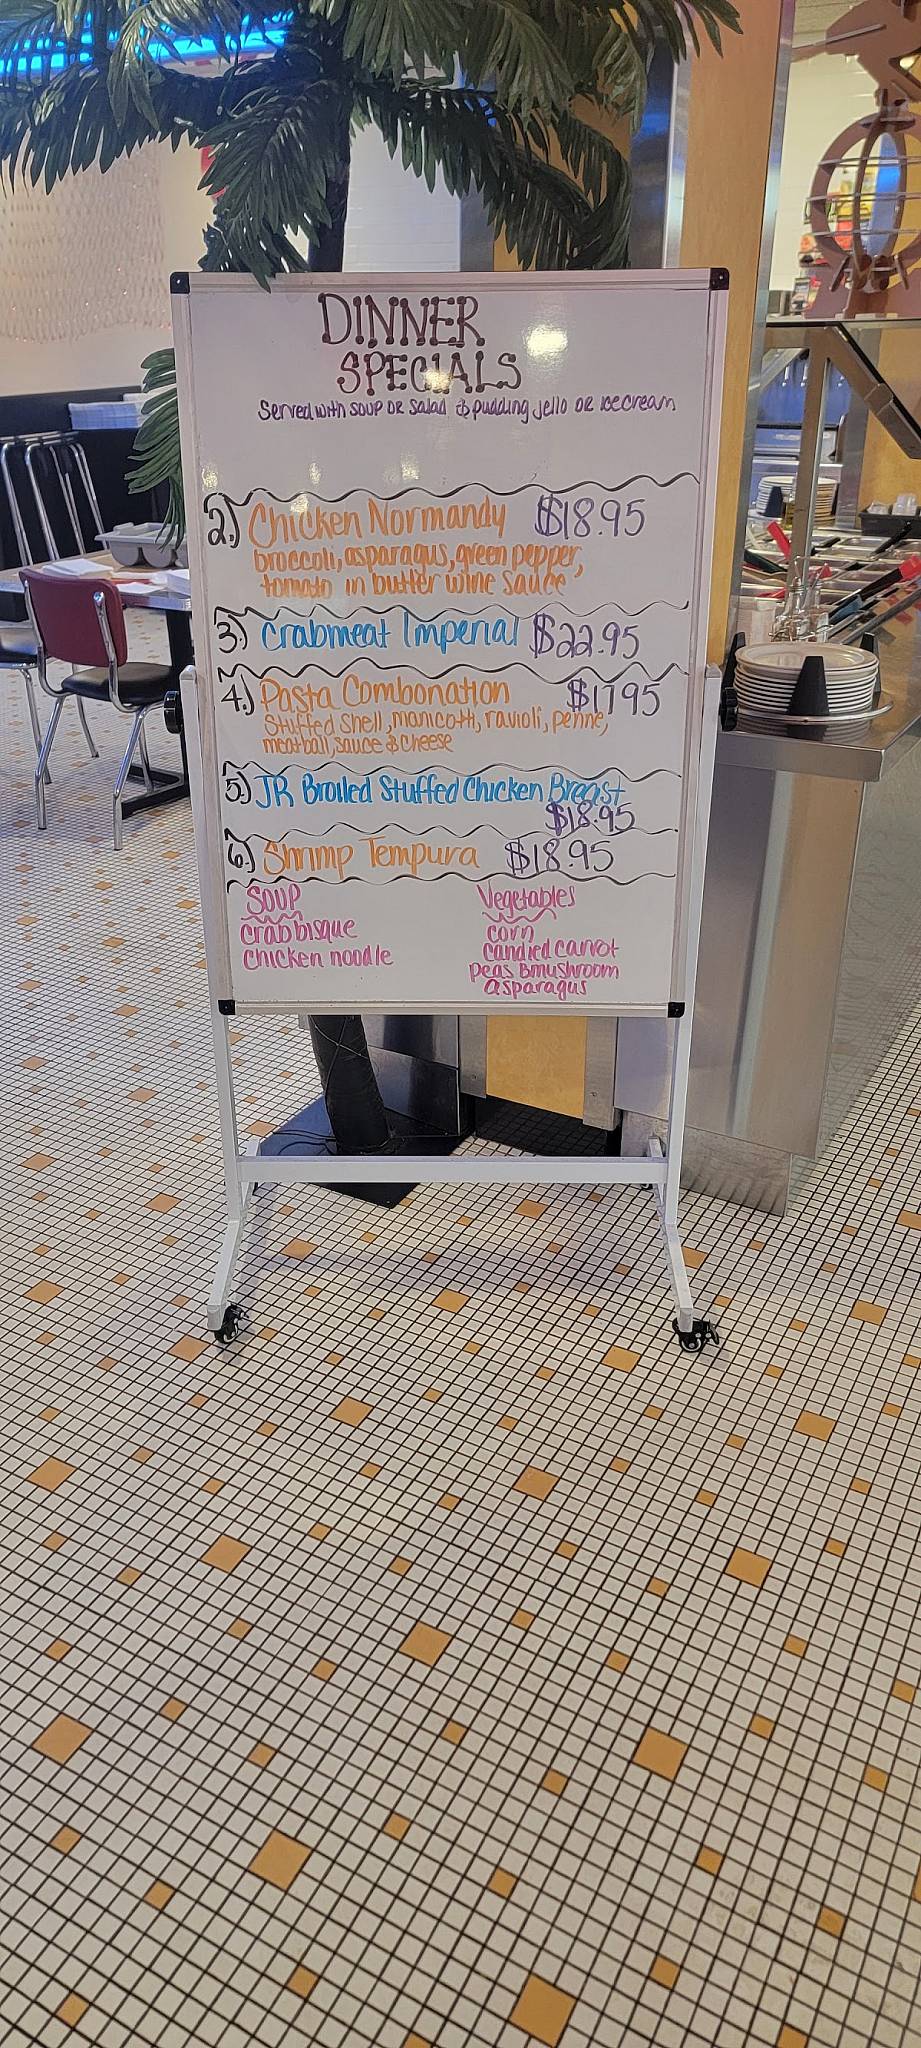 DINNER
SPECIALS
Served with soup or salad & pudding jello or ice cream
2.) Chicken Normandy $18.95
broccoli, asparagus, green pepper,
tomato in butter wine sauce
3.) Crabmeat Imperial $22.95
4.) Pasta Combonation $17.95
Stuffed shell, manicotti, ravioli, penne,
meatball, sauce & cheese
5.) JR Broiled Stuffed Chicken Breast
$18.95
6.) Shrimp Tempura $18.95
Soup
crab bisque
chicken noodle
Vegetables
corn
candied carrot
peas & mushroom
asparagus